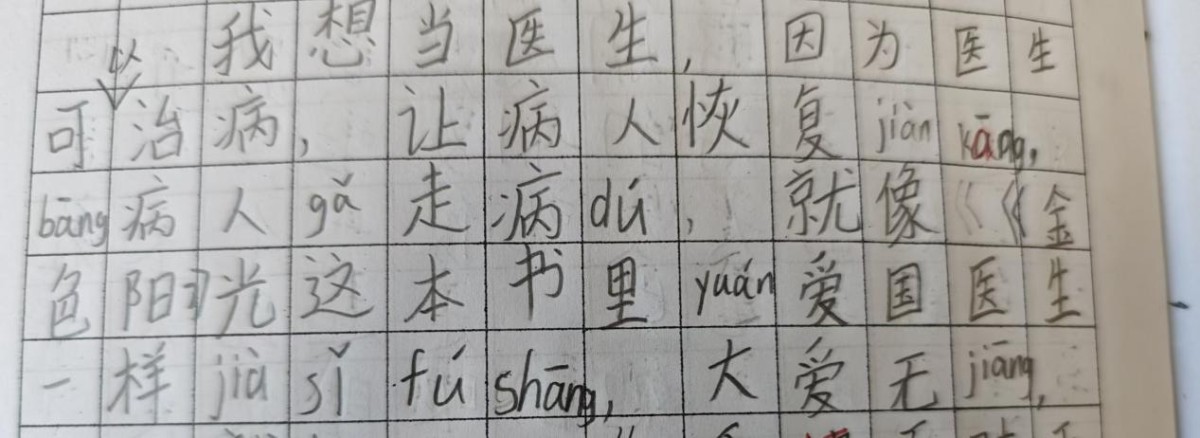 我想当医生，因为医生
可以治病，让病人恢复jiàn kāng，
bāng病人gǎ走病dú，就像《《金
色阳光这本书里yuán爱国医生
一样jiù sǐ fú shāng，大爱无jiāng，